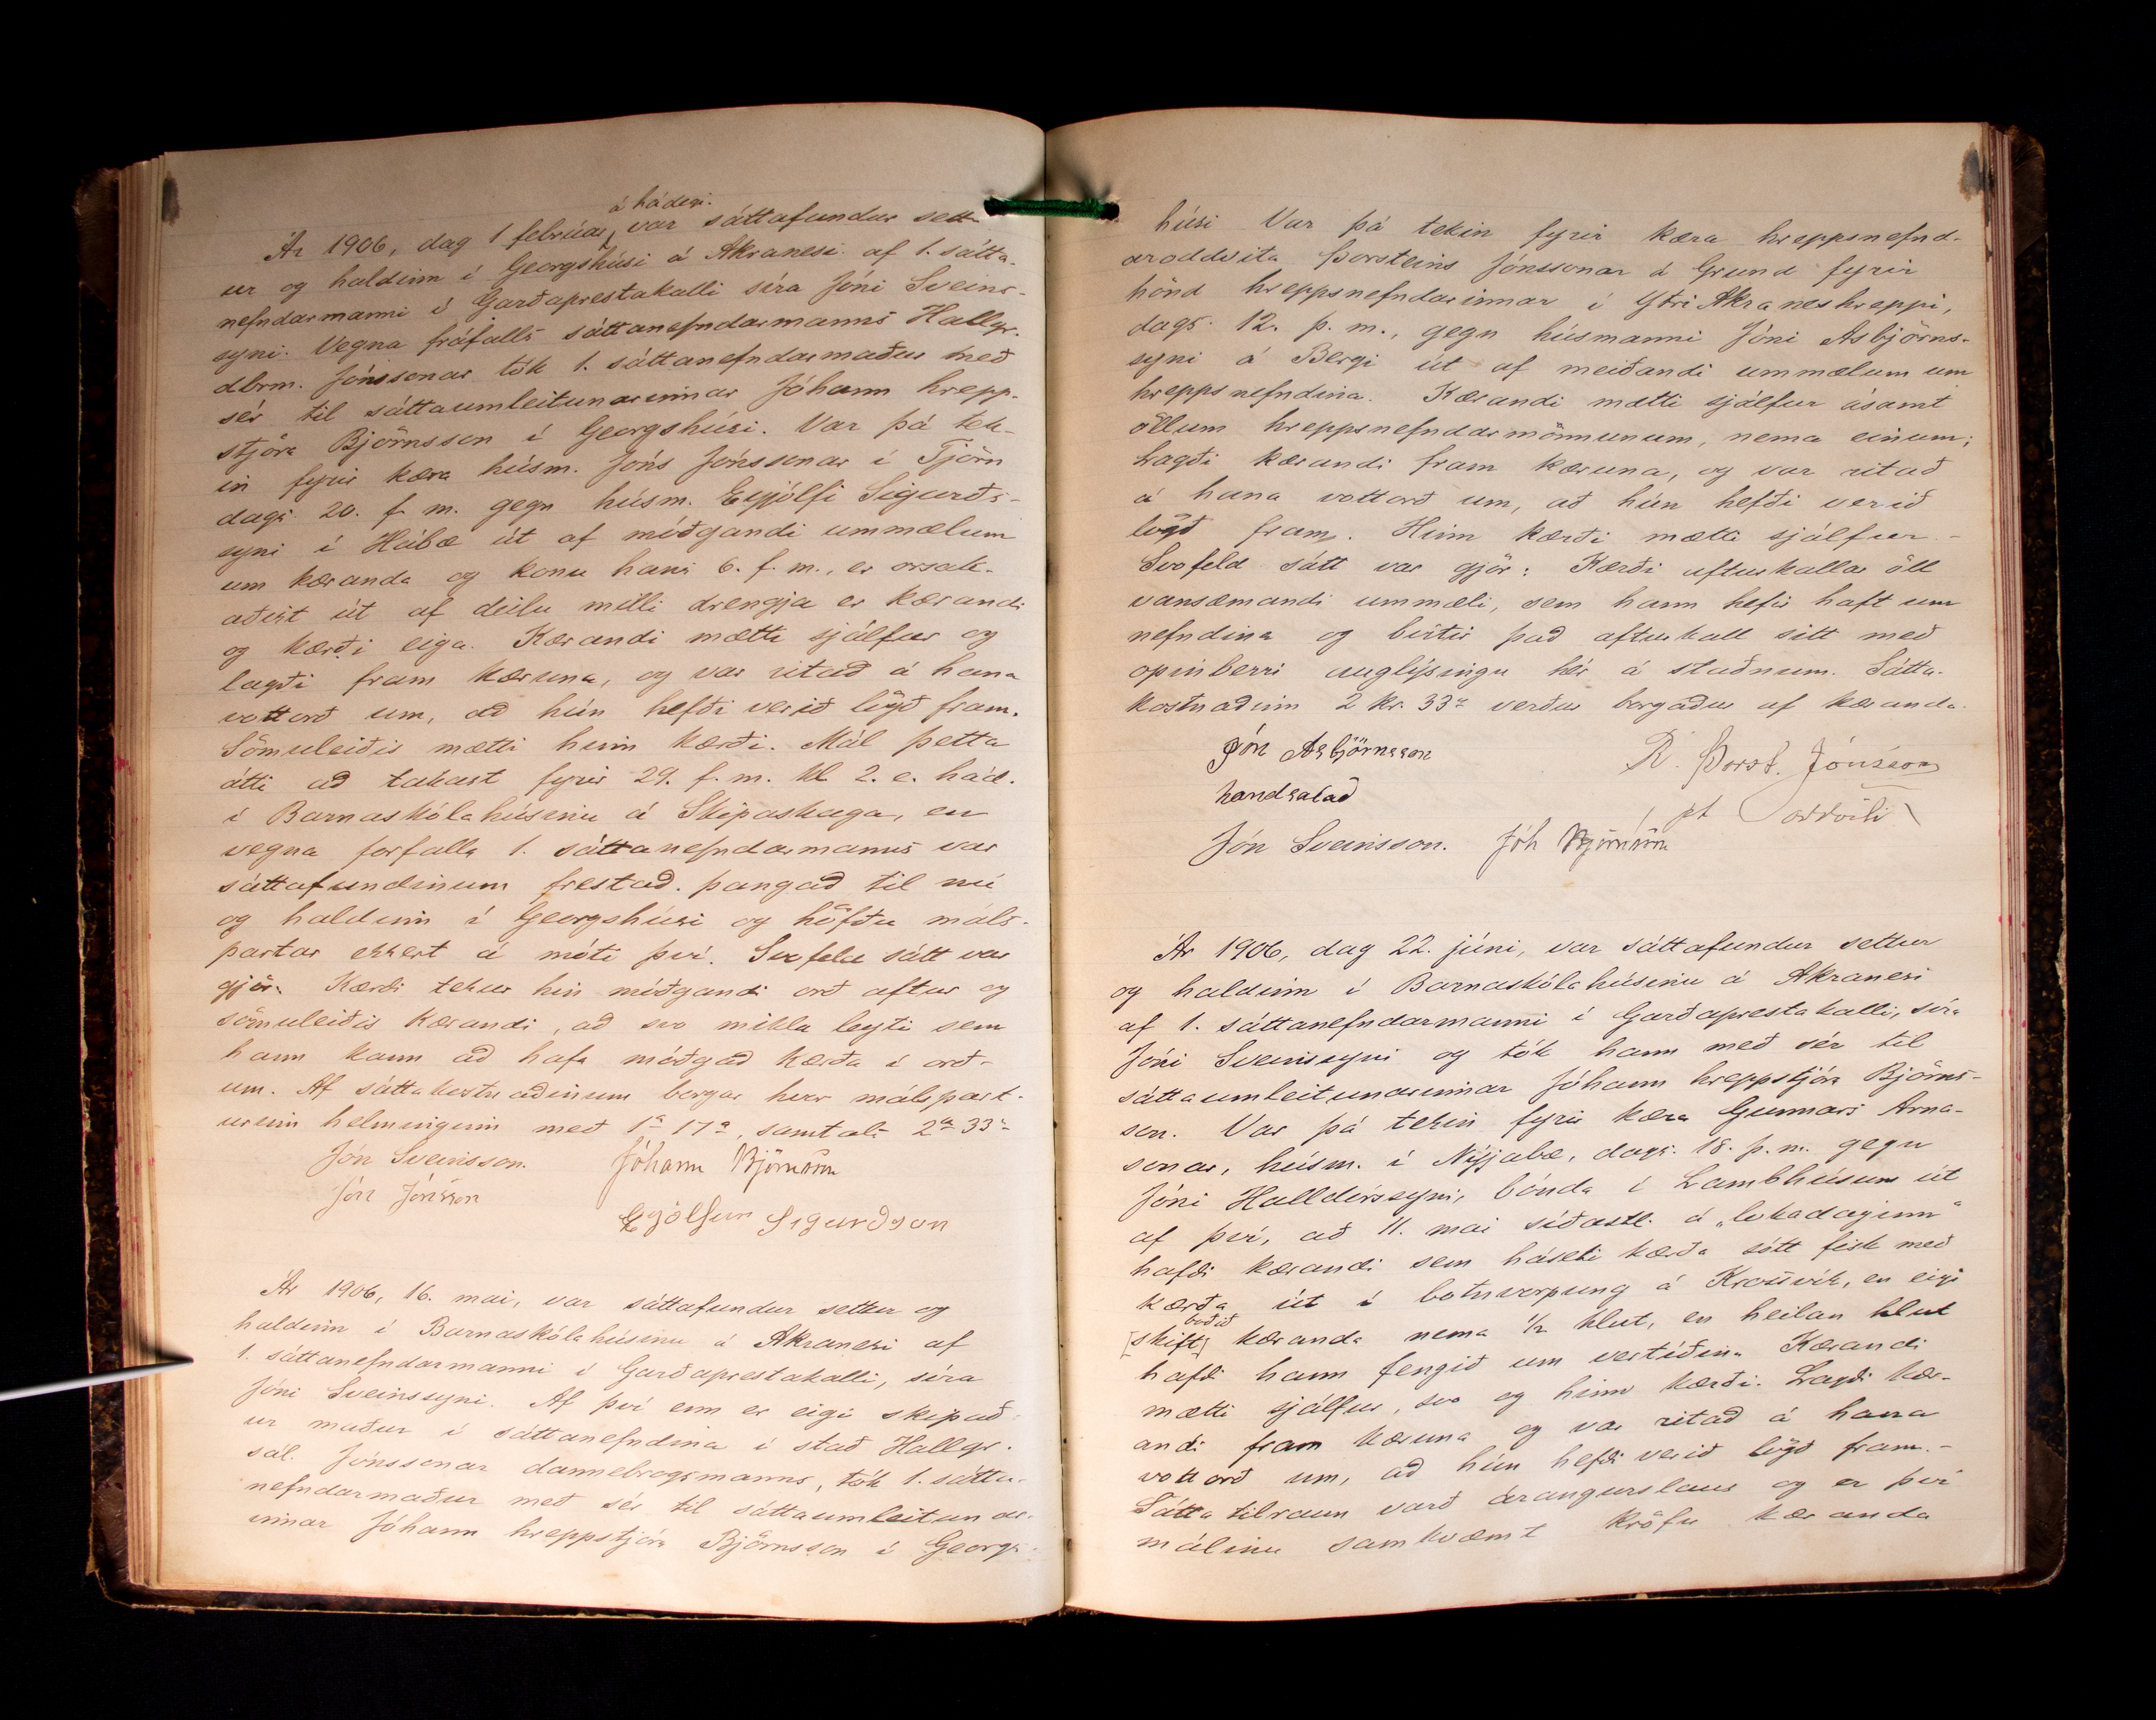 á hádegi.
Ár 1906, dag 1 febrúar, var sáttafundur sett-
ur og haldinn í Georgshúsi á Akranesi af 1. sátta-
nefndarmanni í Garðaprestakalli síra Jóni Sveins-
syni. Vegna fráfalls sáttanefndarmanns Hallgr.
dbrm. Jónssonar tók 1. sáttanefndarmaður með
sér til sáttaumleitunarinnar Jóhann hrepp-
stjóra Björnsson í Georgshúsi. Var þá tek-
in fyrir kæra húsm. Jóns Jónssonar í Tjörn
dags. 20. f. m. gegn húsm. Eyjólfi Sigurðs-
syni í Hábæ út af móðgandi ummælum
um kæranda og konu hans 6. f. m., er orsak-
aðist út af deilu milli drengja er kærandi
og kærði eiga. Kærandi mætti sjálfur og
lagði fram kæruna, og var ritað á hana
vottorð um, að hún hefði verið lögð fram.
Sömuleiðis mætti hinn kærði. Mál þetta
átti að takast fyrir 29. f. m. kl 2. e. hád.
í Barnaskólahúsinu á Skipaskaga, en
vegna forfalla 1. sáttanefndarmanns var
sáttafundinum frestað þangað til nú
og haldinn í Georgshúsi og höfðu máls-
partar ekkert á móti því. Svofeld sátt var
gjör: Kærði tekur hin móðgandi orð aftur og
sömuleiðis kærandi, að svo miklu leyti sem
hann kann að hafa móðgað kærða í orð-
um. Af sáttakostnaðinum borgar hver málspart-
urinn helminginn með 1 kr 17 a, samtals 2 kr 33 a
Jón Sveinsson. Jóhann Björnsson
Jón Jónsson
Eyjólfur Sigurðsson
Ár 1906, 16. mai, var sáttafundur settur og
haldinn í Barnaskólahúsinu á Akranesi af
1. sáttanefndarmanni í Garðaprestakalli, síra
Jóni Sveinssyni. Af því enn er eigi skipað-
ur maður í sáttanefndina í stað Hallgr.
sál. Jónssonar dannebrogsmanns, tók 1. sátta-
nefndarmaður með sér til sáttaumleitunar-
innar Jóhann hreppstjóra Björnsson í Georgs-
húsi Var þá tekin fyrir kæra hreppsnefnd-
aroddvita Þorsteins Jónssonar á Grund fyrir
hönd hreppsnefndarinnar í Ytri Akraneshreppi,
dags. 12. þ. m., gegn húsmanni Jóni Asbjörns-
syni á Bergi út af meiðandi ummælum um
hreppsnefndina. Kærandi mætti sjálfur ásamt
öllum hreppsnefndarmönnunum, nema einum;
Lagði kærandi fram kæruna, og var ritað
á hana vottorð um, að hún hefði verið
lögð fram. Hinn kærði mætti sjálfur -
Svofeld sátt var gjör: Kærði afturkallar öll
vansæmandi ummæli, sem hann hefir haft um
nefndina og birtir það afturkall sitt með
opinberri auglýsingu hér á staðnum. Sátta-
kostnaðinn 2 kr. 33 a verður borgaður af kæranda.
Jón Asbjörnsson
handsalað
Þorst. Jónsson
pt oddviti
Jón Sveinsson. Jóh Björnsson
Ár 1906, dag 22. júni, var sáttafundur settur
og haldinn í Barnaskólahúsinu á Akranesi
af 1. sáttanefndarmanni í Garðaprestakalli, síra
Jóni Sveinssyni og tók hann með sér til
sáttaumleitunarinnar Jóhann hreppstjóra Björns-
son. Var þá tekin fyrir kæra Gunnars Arna-
sonar, húsm. í Nýjabæ, dags. 18. þ. m. gegn
Jóni Halldórssyni, bónda í Lambhúsum út
af því, að 11. mai síðastl. á „lokadaginn“
hafði kærandi sem háseti kærða sótt fisk með
kærða út í botnvörpung á Krossvík, en eigi
boðið
[skift] kæranda nema 1/2 hlut, en heilan hlut
hafði hann fengið um vertíðina Kærandi
mætti sjálfur, svo og hinn kærði. Lagði kær-
andi fram kæruna og var ritað á hana
vottorð um, að hún hefði verið lögð fram. -
Sáttatilraun varð árangurslaus og er því
málinu samkvæmt kröfu kæranda